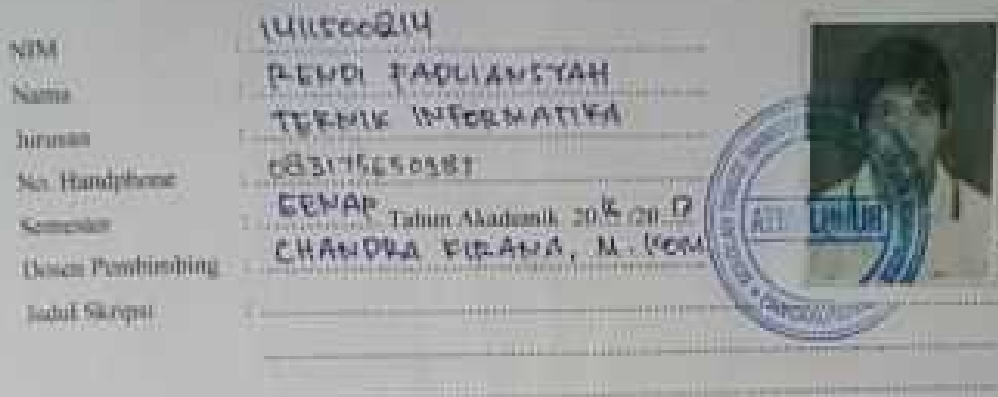 NIM : 1411500214
Nama : RENDI FADLIANSYAH
Jurusan : TEKNIK INFORMATIKA
No. Handphone : 083175650387
Semester : GENAP Tahun Akademik 2016/2017
Dosen Pembimbing : CHANDRA KIRANA, M.KOM
Judul Skripsi :
ATMA LUHUR